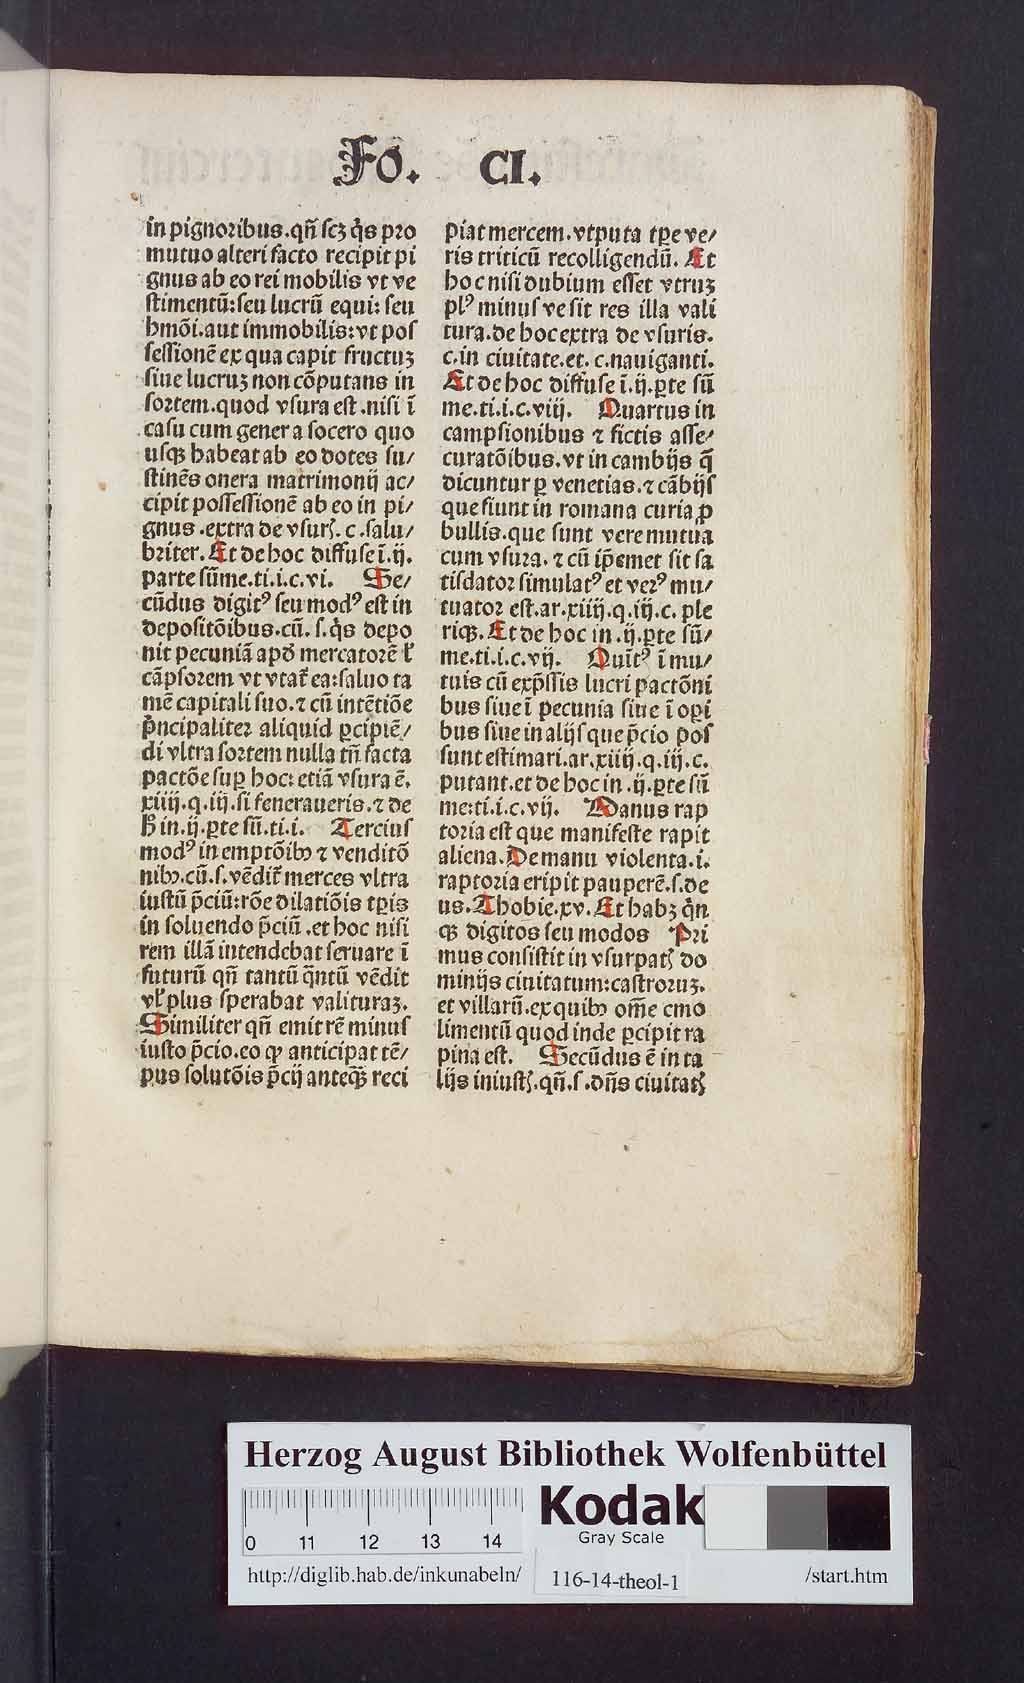 Fo. CI.
in pignoribus.qñ scꝫ q̇s pro
mutuo alteri facto recipit pi
gnus ab eo rei mobilis vt ve
stimentū:seu lucrū equi: seu
hmōi.aut immobilis:vt pos
sessionē ex qua capit fructuꝫ
siue lucruꝫ non cōputans in
sortem.quod vsura est.nisi ī
casu cum gener a socero quo
usqꝫ habeat ab eo dotes su/
stinēs onera matrimonij ac/
cipit possessionē ab eo in pi/
gnus.extra de vsurꝭ.c.salu/
briter.Et de hoc diffuse ī.ij.
parte sūme.ti.i.c.vi. Se/
cūdus digitꝰ seu modꝰ est in
depositōibus.cū.s.q̇s depo
nit pecuniā apđ mercatorē ł
cāpsorem vt vtat̄ ea:saluo ta
mē capitali suo.⁊ cū intētiōe
p̄ncipaliter aliquid ꝑcipiē/
di vltra sortem nulla tñ facta
pactōe suꝑ hoc:etiā vsura ē.
xiiij.q.iij.si feneraueris.⁊ de
ħ in.ij.ꝑte sū.ti.i. Tercius
modꝰ in emptōibꝫ ⁊ venditō
nibꝫ.cū.s.vēdit̄ merces vltra
iustū p̄ciū:rōe dilatiōis tꝑis
in soluendo p̄ciū.et hoc nisi
rem illā intendebat seruare ī
futurū qñ tantū q̄ntū vēdit
vł plus sperabat valituraꝫ.
Similiter qñ emit rē minus
iusto p̄cio.eo ꝙ anticipat tē/
pus solutōis p̄cij anteqꝫ reci
piat mercem.vtputa tꝑe ve/
ris triticū recolligendū. Et
hoc nisi dubium esset vtruꝫ
plꝰ minus ve sit res illa vali
tura.de hoc extra de vsuris.
c.in ciuitate.et.c.nauiganti.
Et de hoc diffuse ī.ij.ꝑte sū
me.ti.i.c.viij. Quartus in
campsionibus ⁊ fictis asse/
curatōibus.vt in cambijs q̄
dicuntur ꝑ venetias.⁊ cābijs
que fiunt in romana curia ꝓ
bullis.que sunt vere mutua
cum vsura.⁊ cū ip̄emet sit sa
tisdator simulatꝰ et verꝰ mu/
tuator est.ar.xiiij.q.iij.c.ple
riqꝫ.Et de hoc in.ij.ꝑte sū/
me.ti.i.c.vij. Quīt̉ꝰ ī mu/
tuis cū exp̄ssis lucri pactōni
bus siue ī pecunia siue ī oꝑi
bus siue in alijs que p̄cio pos
sunt estimari.ar.xiiij.q.iij.c.
putant.et de hoc in.ij.ꝑte sū
me:ti.i.c.vij. Manus rap
toria est que manifeste rapit
aliena.De manu violenta.i.
raptoria eripit pauperē.s.de
us.Thobie.xv.Et habꝫ q̇n
qꝫ digitos seu modos Pri
mus consistit in vsurpatꝭ do
minijs ciuitatum:castroruꝫ.
et villarū.ex quibꝫ om̄e emo
limentū quod inde ꝑcipit ra
pina est. Secūdus ē in ta
lijs iniustꝭ.qñ.s.dñs ciuitatꝭ
Herzog August Bibliothek Wolfenbüttel
0 11 12 13 14
Kodak
Gray Scale
http://diglib.hab.de/inkunabeln/ 116-14-theol-1 /start.htm